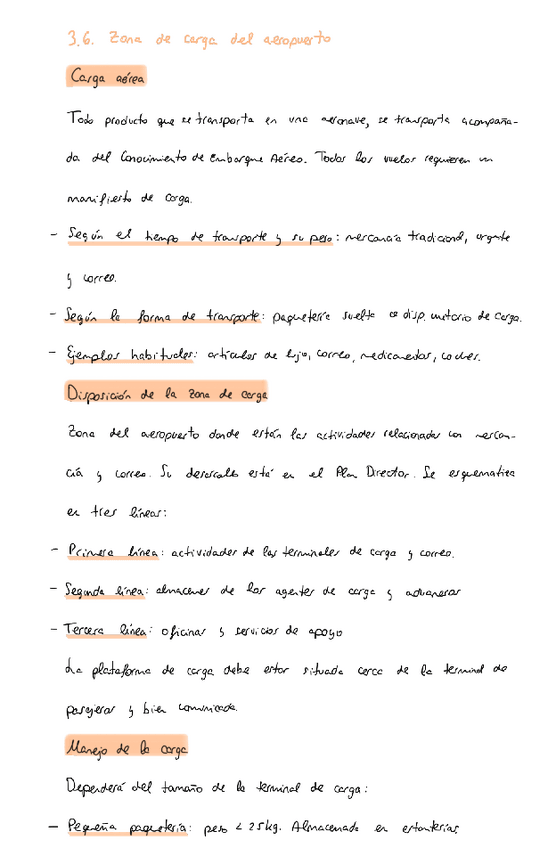 3.6. Zona de carga del aeropuerto
Carga aérea
Todo producto que se transporta en una aeronave, se transporta acompaña-
da del Conocimiento de Embarque Aéreo. Todos los vuelos requieren un
manifiesto de carga.
- Según el tiempo de transporte y su peso: mercancía tradicional, urgente
y correo.
- Según la forma de transporte: paquetería suelta o disp. unitario de carga.
- Ejemplos habituales: artículos de lujo, correo, medicamentos, coches.
Disposición de la zona de carga
Zona del aeropuerto donde están las actividades relacionadas con mercan-
cía y correo. Su desarrollo está en el Plan Director. Se esquematiza
en tres líneas:
- Primera línea: actividades de las terminales de carga y correo.
- Segunda línea: almacenes de los agentes de carga y aduaneras
- Tercera línea: oficinas y servicios de apoyo
La plataforma de carga debe estar situada cerca de la terminal de
pasajeros y bien comunicada.
Manejo de la carga
Dependerá del tamaño de la terminal de carga:
- Pequeña paquetería: peso < 25kg. Almacenada en estanterías.